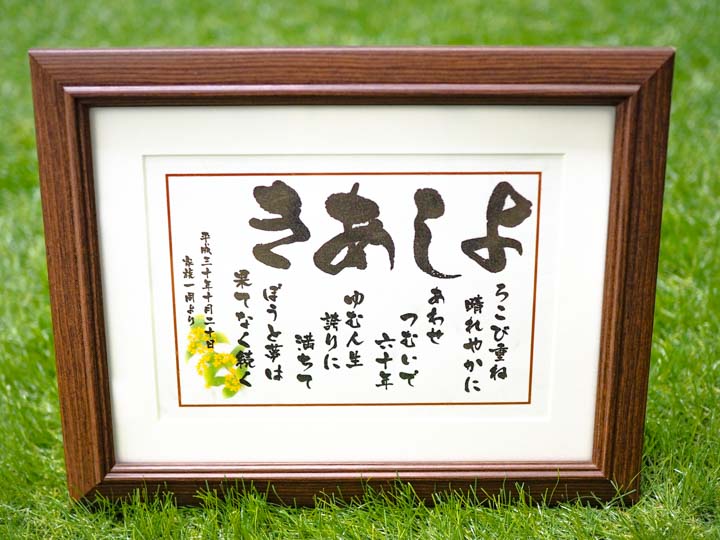 よしあき
ろこび重ね
晴れやかに
あわせ
つむいで
六十年
ゆむ人生
誇りに
満ちて
ぼうと夢は
果てなく続く
平成三十年十月二十日
家族一同より